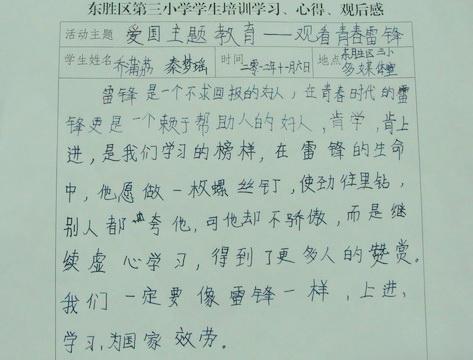 东胜区第三小学学生培训学习、心得、观后感
活动主题 爱国主题教育——观看青春雷锋
学生姓名 乔蒲荔 秦梦瑶 时间 二零一二年十一月六日 地点 东胜区三小多媒体室
雷锋是一个不求回报的好人,在青春时代的雷
锋更是一个乐于帮助人的好人,肯学,肯上
进,是我们学习的榜样,在雷锋的生命
中,他愿做一枚螺丝钉,使劲往里钻,
别人都夸他,可他却不骄傲,而是继
续虚心学习,得到了更多人的赞赏。
我们一定要像雷锋一样,上进,
学习,为国家效劳。